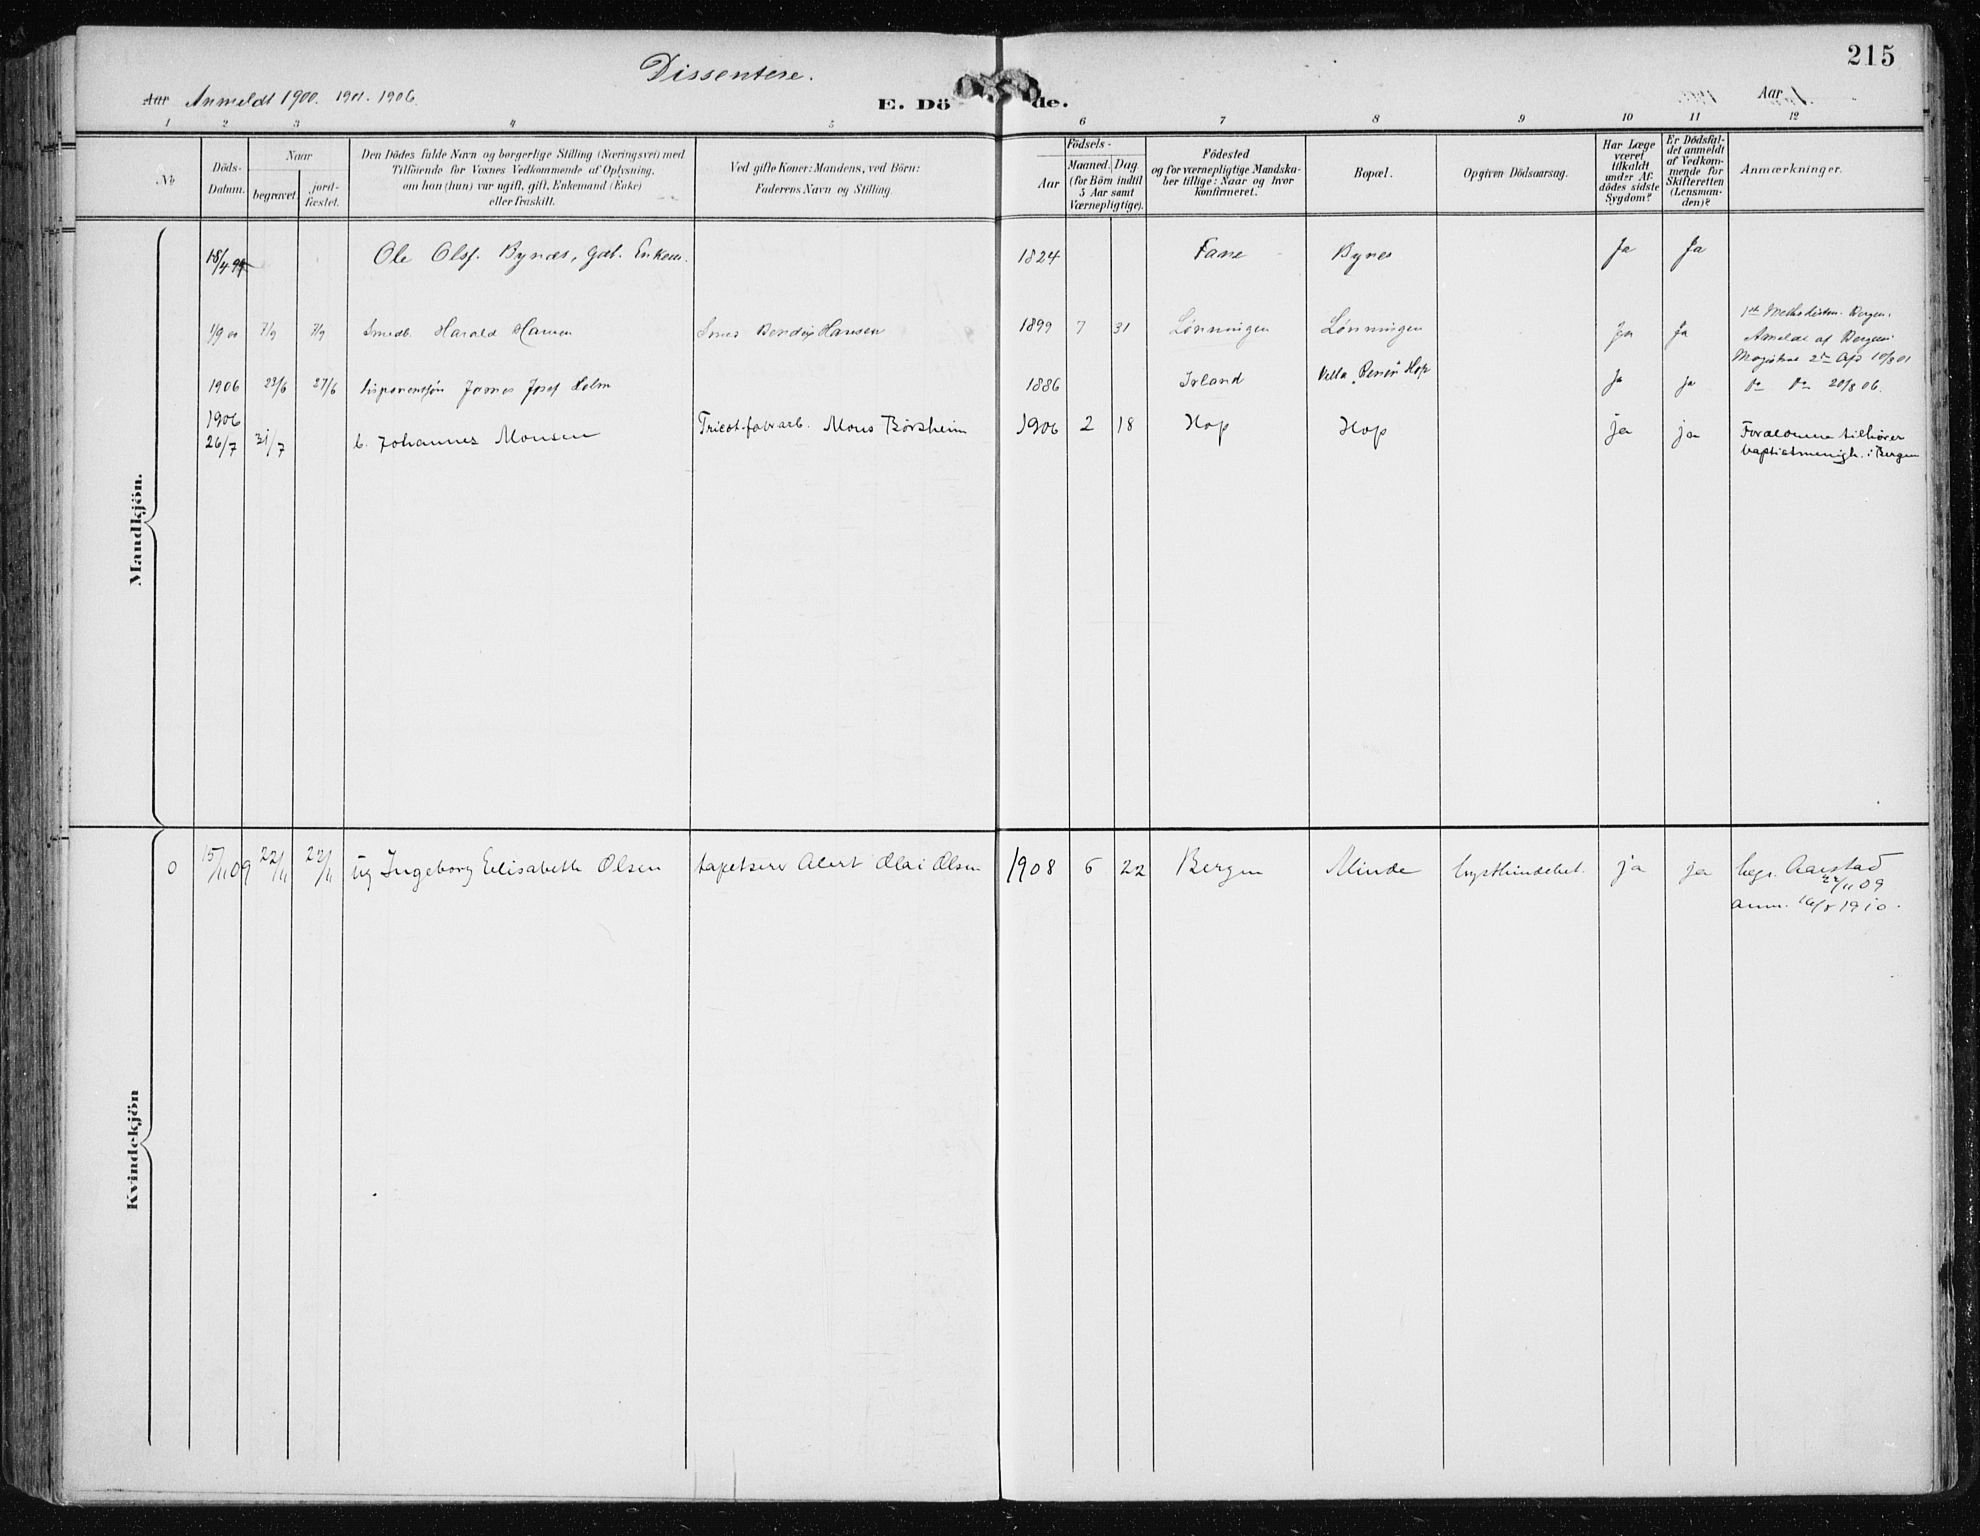 215
Dissentere.
Aar Anmeldt 1900. 1901. 1906.
E. Dö de.
Aar
1 2 3 4 5 6 7 8 9 10 11 12
No
Döds-Datum.
Naar
begravet.
jord-fæstet.
Den Dödes fulde Navn og borgerlige Stilling (Næringsvei) med
Tilföiende for Voxnes Vedkommende af Oplysning,
om han (hun) var ugift, gift, Enkemand (Enke)
eller fraskilt.
Ved gifte Koner: Mandens, ved Börn:
Faderens Navn og Stilling.
Födsels-
Aar
Maaned. Dag
(for Börn indtil
5 Aar samt
Værnepligtige).
Födested
og for værnepligtige Mandska-
ber tillige: Naar og hvor
konfirmeret.
Bopæl.
Opgiven Dödsaarsag.
Har Læge
været
tilkaldt
under Af-
dödes sidste
Sygdom?
Er Dödsfal-
det anmeldt
af Vedkom-
mende for
Skifteretten
(Lensman-
den)?
Anmærkninger.
Mandkjön.
18/4 99 Ole Ols. Bynes, Gdb. Enkem. 1824 Fane Bynes Ja Ja
1/9 00 7/9 7/9 Smedb. Harald Hansen Smed Bendix Hansen 1899 7 31 Lönningen Lönningen Ja Ja
1st Methodistm. Bergen.
Anmeldt af Bergens
Magistrat 2den Afd 10/8 01
1906 23/6 27/6 disponentsön James Josef Holm 1886 Irland Villa Hop Ja ja 20/8 06.
1906
26/7 31/7 b. Johannes Monsen Tricot-fabrarb. Mons Børsheim 1906 2 18 Hop Hop ja ja Forældrene tilhører
baptistmenigh. i Bergen
Kvindekjön
0 15/11 09 22/11 22/11 ug Ingeborg Elisabeth Olsen tapetserer Albert Olai Olsen 1908 6 22 Bergen Minde brysthindebet. ja ja begr. Aarstad
22/11 09
anm. 16/8 1910.